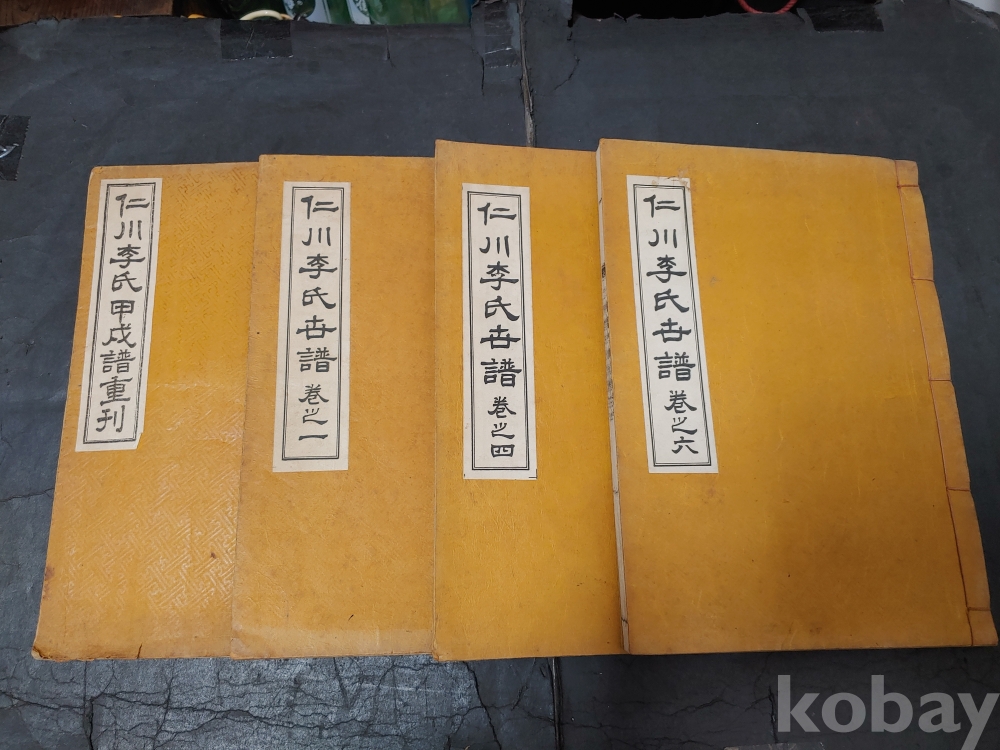 仁川李氏甲戌譜重刊
仁川李氏世譜 卷之一
仁川李氏世譜 卷之四
仁川李氏世譜 卷之六
kobay